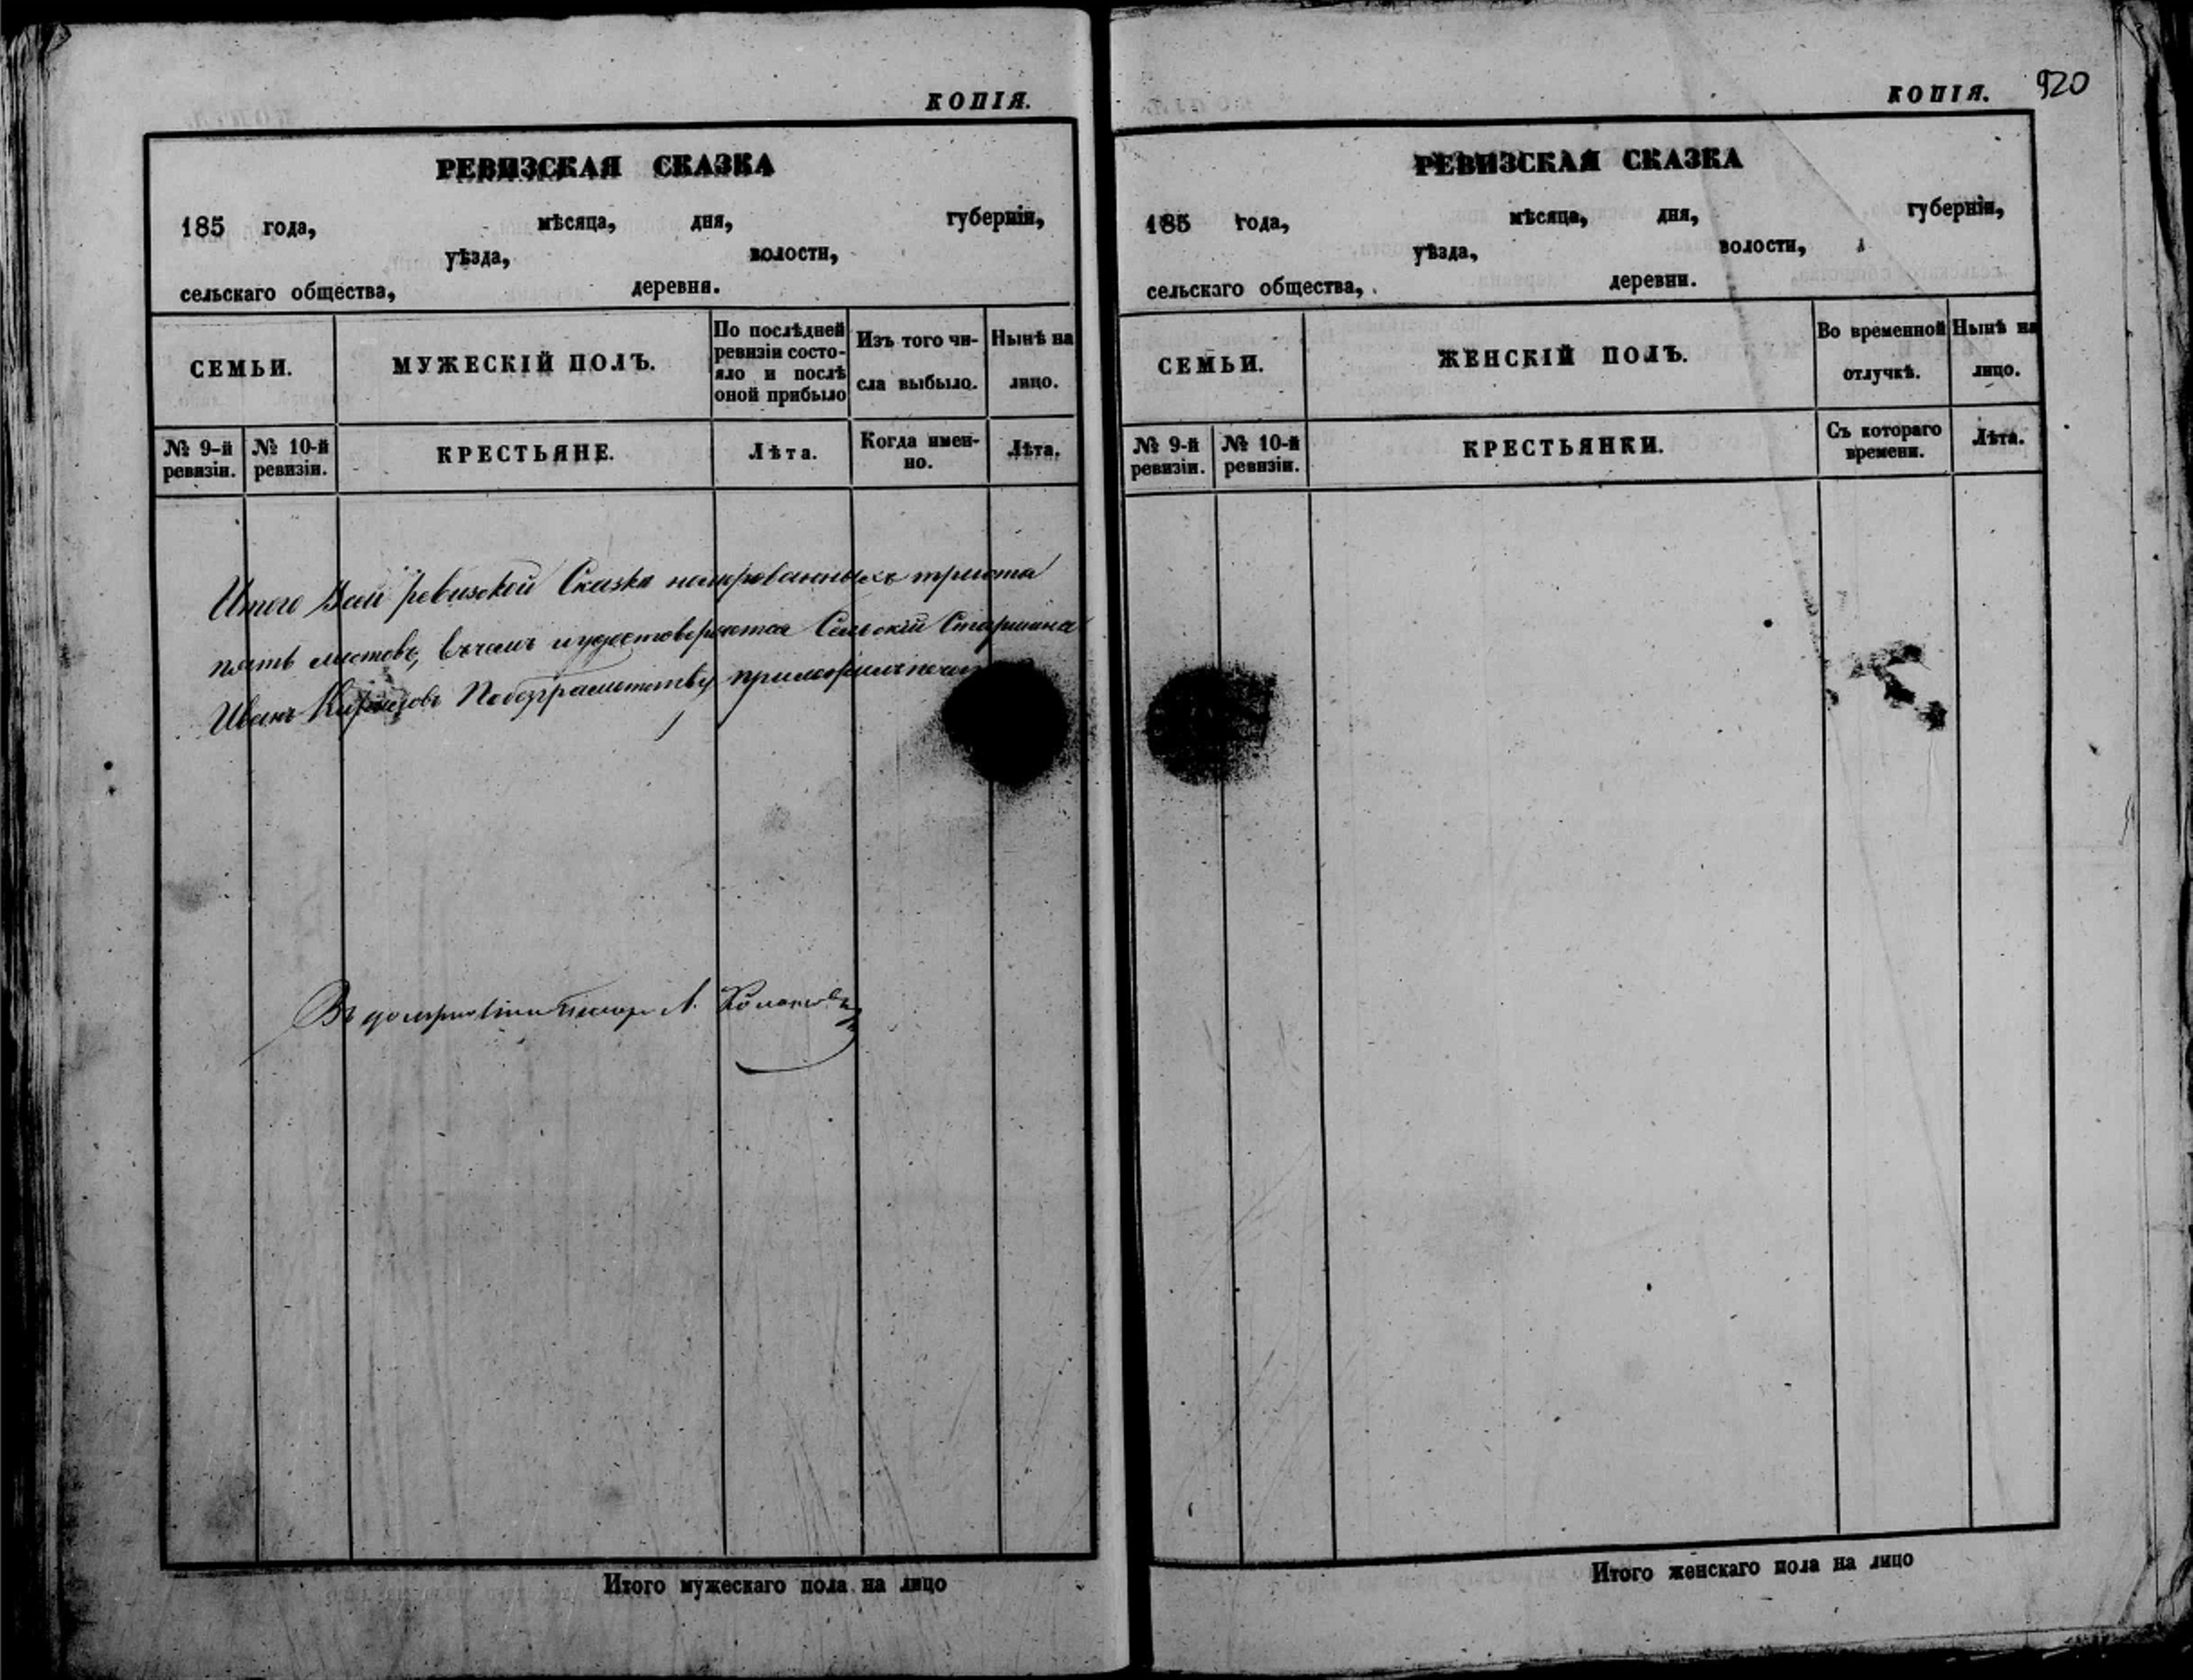 КОПІЯ.
РЕВИЗСКАЯ СКАЗКА
185 года, мѣсяца, дня, губерніи,
уѣзда, волости,
сельскаго общества, деревни.
СЕМЬИ.
МУЖЕСКІЙ ПОЛЪ.
По послѣдней
ревизіи состо-
яло и послѣ
оной прибыло
Изъ того чи-
сла выбыло.
Нынѣ на
лицо.
№ 9-й
ревизіи.
№ 10-й
ревизіи.
КРЕСТЬЯНЕ.
Лѣта.
Когда имен-
но.
Лѣта.
Итого Всей ревизской Сказки номерованныхъ триста
пять листовъ, въ чемъ и удостоверяется Сельскій Старшина
Иванъ По безграмотству приложилъ
Въ А.
Итого мужескаго пола на лицо
КОПІЯ. 920
РЕВИЗСКАЯ СКАЗКА
185 года, мѣсяца, дня, губерніи,
уѣзда, волости,
сельскаго общества, деревни.
СЕМЬИ.
ЖЕНСКІЙ ПОЛЪ.
Во временной
отлучкѣ.
Нынѣ на
лицо.
№ 9-й
ревизіи.
№ 10-й
ревизіи.
КРЕСТЬЯНКИ.
Съ котораго
времени.
Лѣта.
Итого женскаго пола на лицо